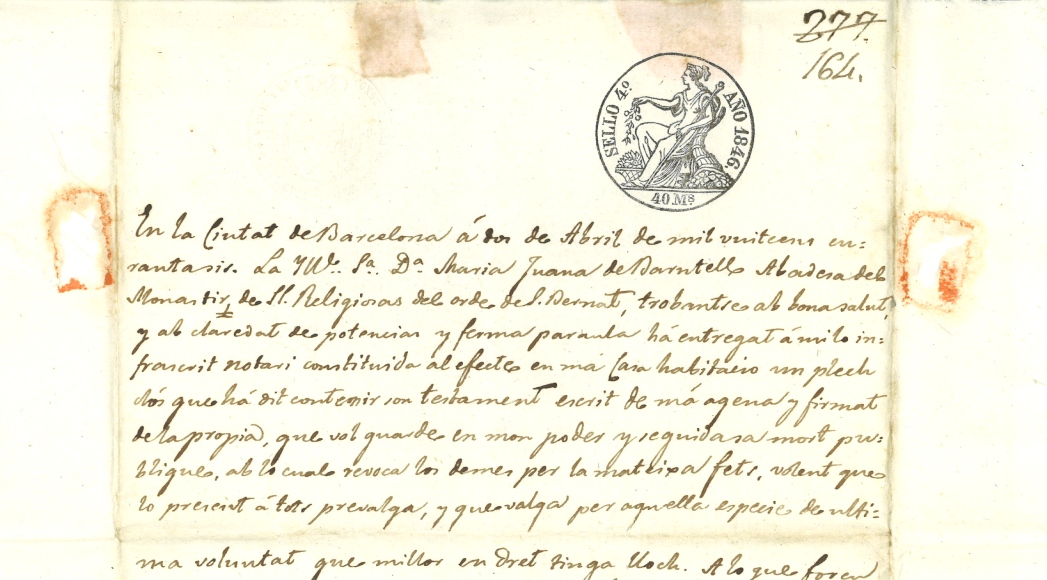 277.
164.
SELLO 4º AÑO 1846.
40 Mˢ
En la Ciutat de Barcelona á dos de Abril de mil vuitcens cu=
rantasis. La Y Wᵉ. Sᵃ. Dᵃ Maria Juana de Barutell Abadesa del
Monastir de SS. Religiosas del orde de S. Bernat, trobantse ab bona salut,
y ab claredat de potencias y ferma paraula há entregat á mi lo in=
frascrit notari constituida al efecte en ma Casa habitacio un plech
clós que há dit contenir son testament escrit de má agena y firmat
de la propia, que vol guarde en mon poder y seguida sa mort pu=
blique, ab lo cual revoca los demes per la mateixa fets, volent que
lo present á tots prevalga, y que valga per aquella especie de ulti=
ma voluntat que millor en dret tinga lloch. A lo que foren